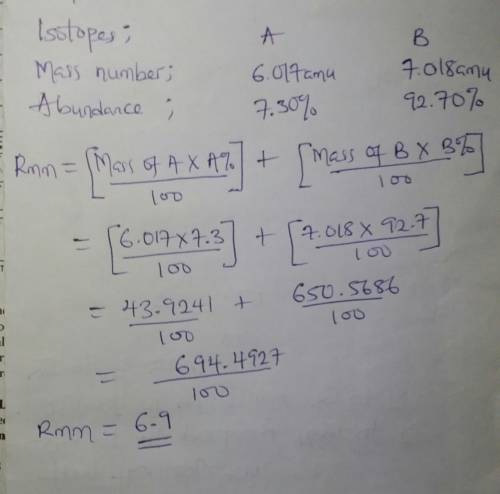 Isotopes; A B
Mass number; 6.017amu 7.018amu
Abundance ; 7.30% 92.70%
Rmm = [Mass of A X A% / 100] + [Mass of B X B% / 100]
= [6.017 X 7.3 / 100] + [7.018 X 92.7 / 100]
= 43.9241 / 100 + 650.5686 / 100
= 694.4927 / 100
Rmm = 6.9